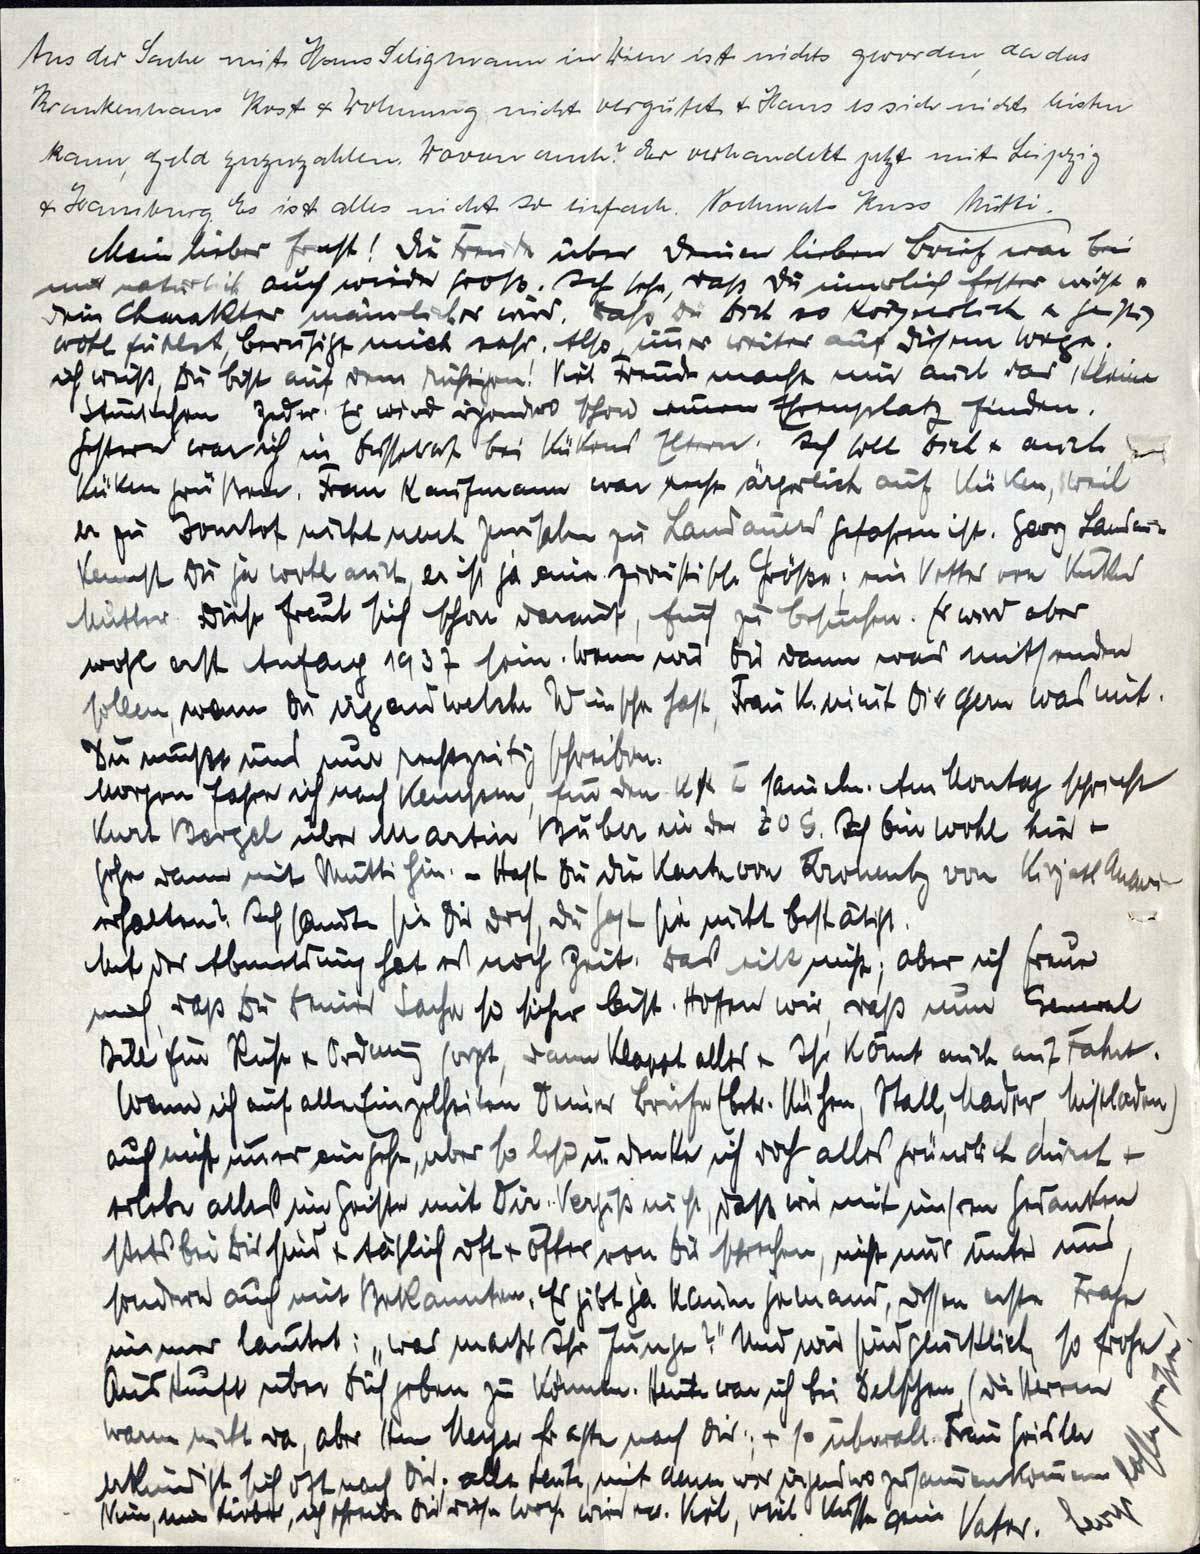 Aus der Sache mit Hans Seligmann in Wien ist nichts geworden, da das
Krankenhaus Kost & Wohnung nicht vergütet & Hans es sich nicht leisten
kann, Geld zuzuzahlen. Wovon auch? Er verhandelt jetzt mit Leipzig
& Hamburg. Es ist alles nicht so einfach. Nochmals Kuss Mutti.
Mein lieber Ernst! Die Freude über Deinen lieben Brief war bei
mir natürlich auch wieder groß. Ich sehe, daß Du innerlich fester wirst &
Dein Charakter männlicher wird. Daß Du Dich so körperlich & geistig
wohl fühlst, beruhigt mich sehr. Also immer weiter auf diesem Wege.
ich weiß, Du bist auf dem richtigen! Viel Freude macht mir auch das kleine
Stückchen Zeder. Er wird irgendwo schon einen Ehrenplatz finden.
Gestern war ich in bei Kükens Eltern. Ich soll Dich & auch
Küken grüßen. Frau Kaufmann war sehr ärgerlich auf Küken, weil
er zu Jomtof nicht nach Jerusalem zu Landauers gefahren ist. Georg Landauer
kennst Du ja wohl auch, er ist ja eine zionistische Größe, ein Vetter von Kükens
Mutter. Diese freut sich schon darauf, Euch zu besuchen. Er wird aber
wohl erst Anfang 1937 sein. Wenn wir Dir dann was mitsenden
sollen, wenn Du irgendwelche Wünsche hast, Frau K. nimmt Dir gern was mit.
Du mußt uns nur rechtzeitig schreiben.
Morgen fahre ich nach Kempen, für den K sammeln. Am Montag spricht
Kurt Bergel über Martin Buber in der ZOG. Ich bin wohl hier &
gehe dann mit Mutti hin. - Hast Du die Karte von Kronenberg von Kirjath Anavim
erhalten? Ich sandte sie Dir doch, Du hast sie nicht bestätigt.
Mit der Abmeldung hat es noch Zeit. Das eilt nicht; aber ich freue
mich, daß Du Deiner Sache so sicher bist. Hoffen wir, daß nun General
Dill für Ruhe & Ordnung sorgt, dann klappt alles & Ihr könnt auch auf Fahrt.
Wenn ich auf alle Einzelheiten Deiner Briefe (betr. Küken, Stall, Mader, Mistladen)
auch nicht immer eingehe, aber so lese u. denke ich doch alles gründlich durch &
erlebe alles im Geiste mit Dir. Vergiß nicht, daß wir mit unsren Gedanken
stets bei Dir sind & täglich oft & öfter von Dir sprechen, nicht nur unter uns,
sondern auch mit Bekannten. Es gibt ja kaum jemand, dessen erste Frage
nicht immer lautet: „was macht Ihr Junge?" Und wir sind glücklich, so frohe
Auskunft über Dich geben zu können. Heute war ich bei (die Herren
waren nicht da, aber Meyer fragte nach Dir; & so überall. Frau
erkundigt sich oft nach Dir. alle Leute, mit denen wir irgendwo zusammenkommen
Nun, mein Lieber, ich schreibe Dir diese Woche wieder. Viel, viel Küsse Dein Vater.